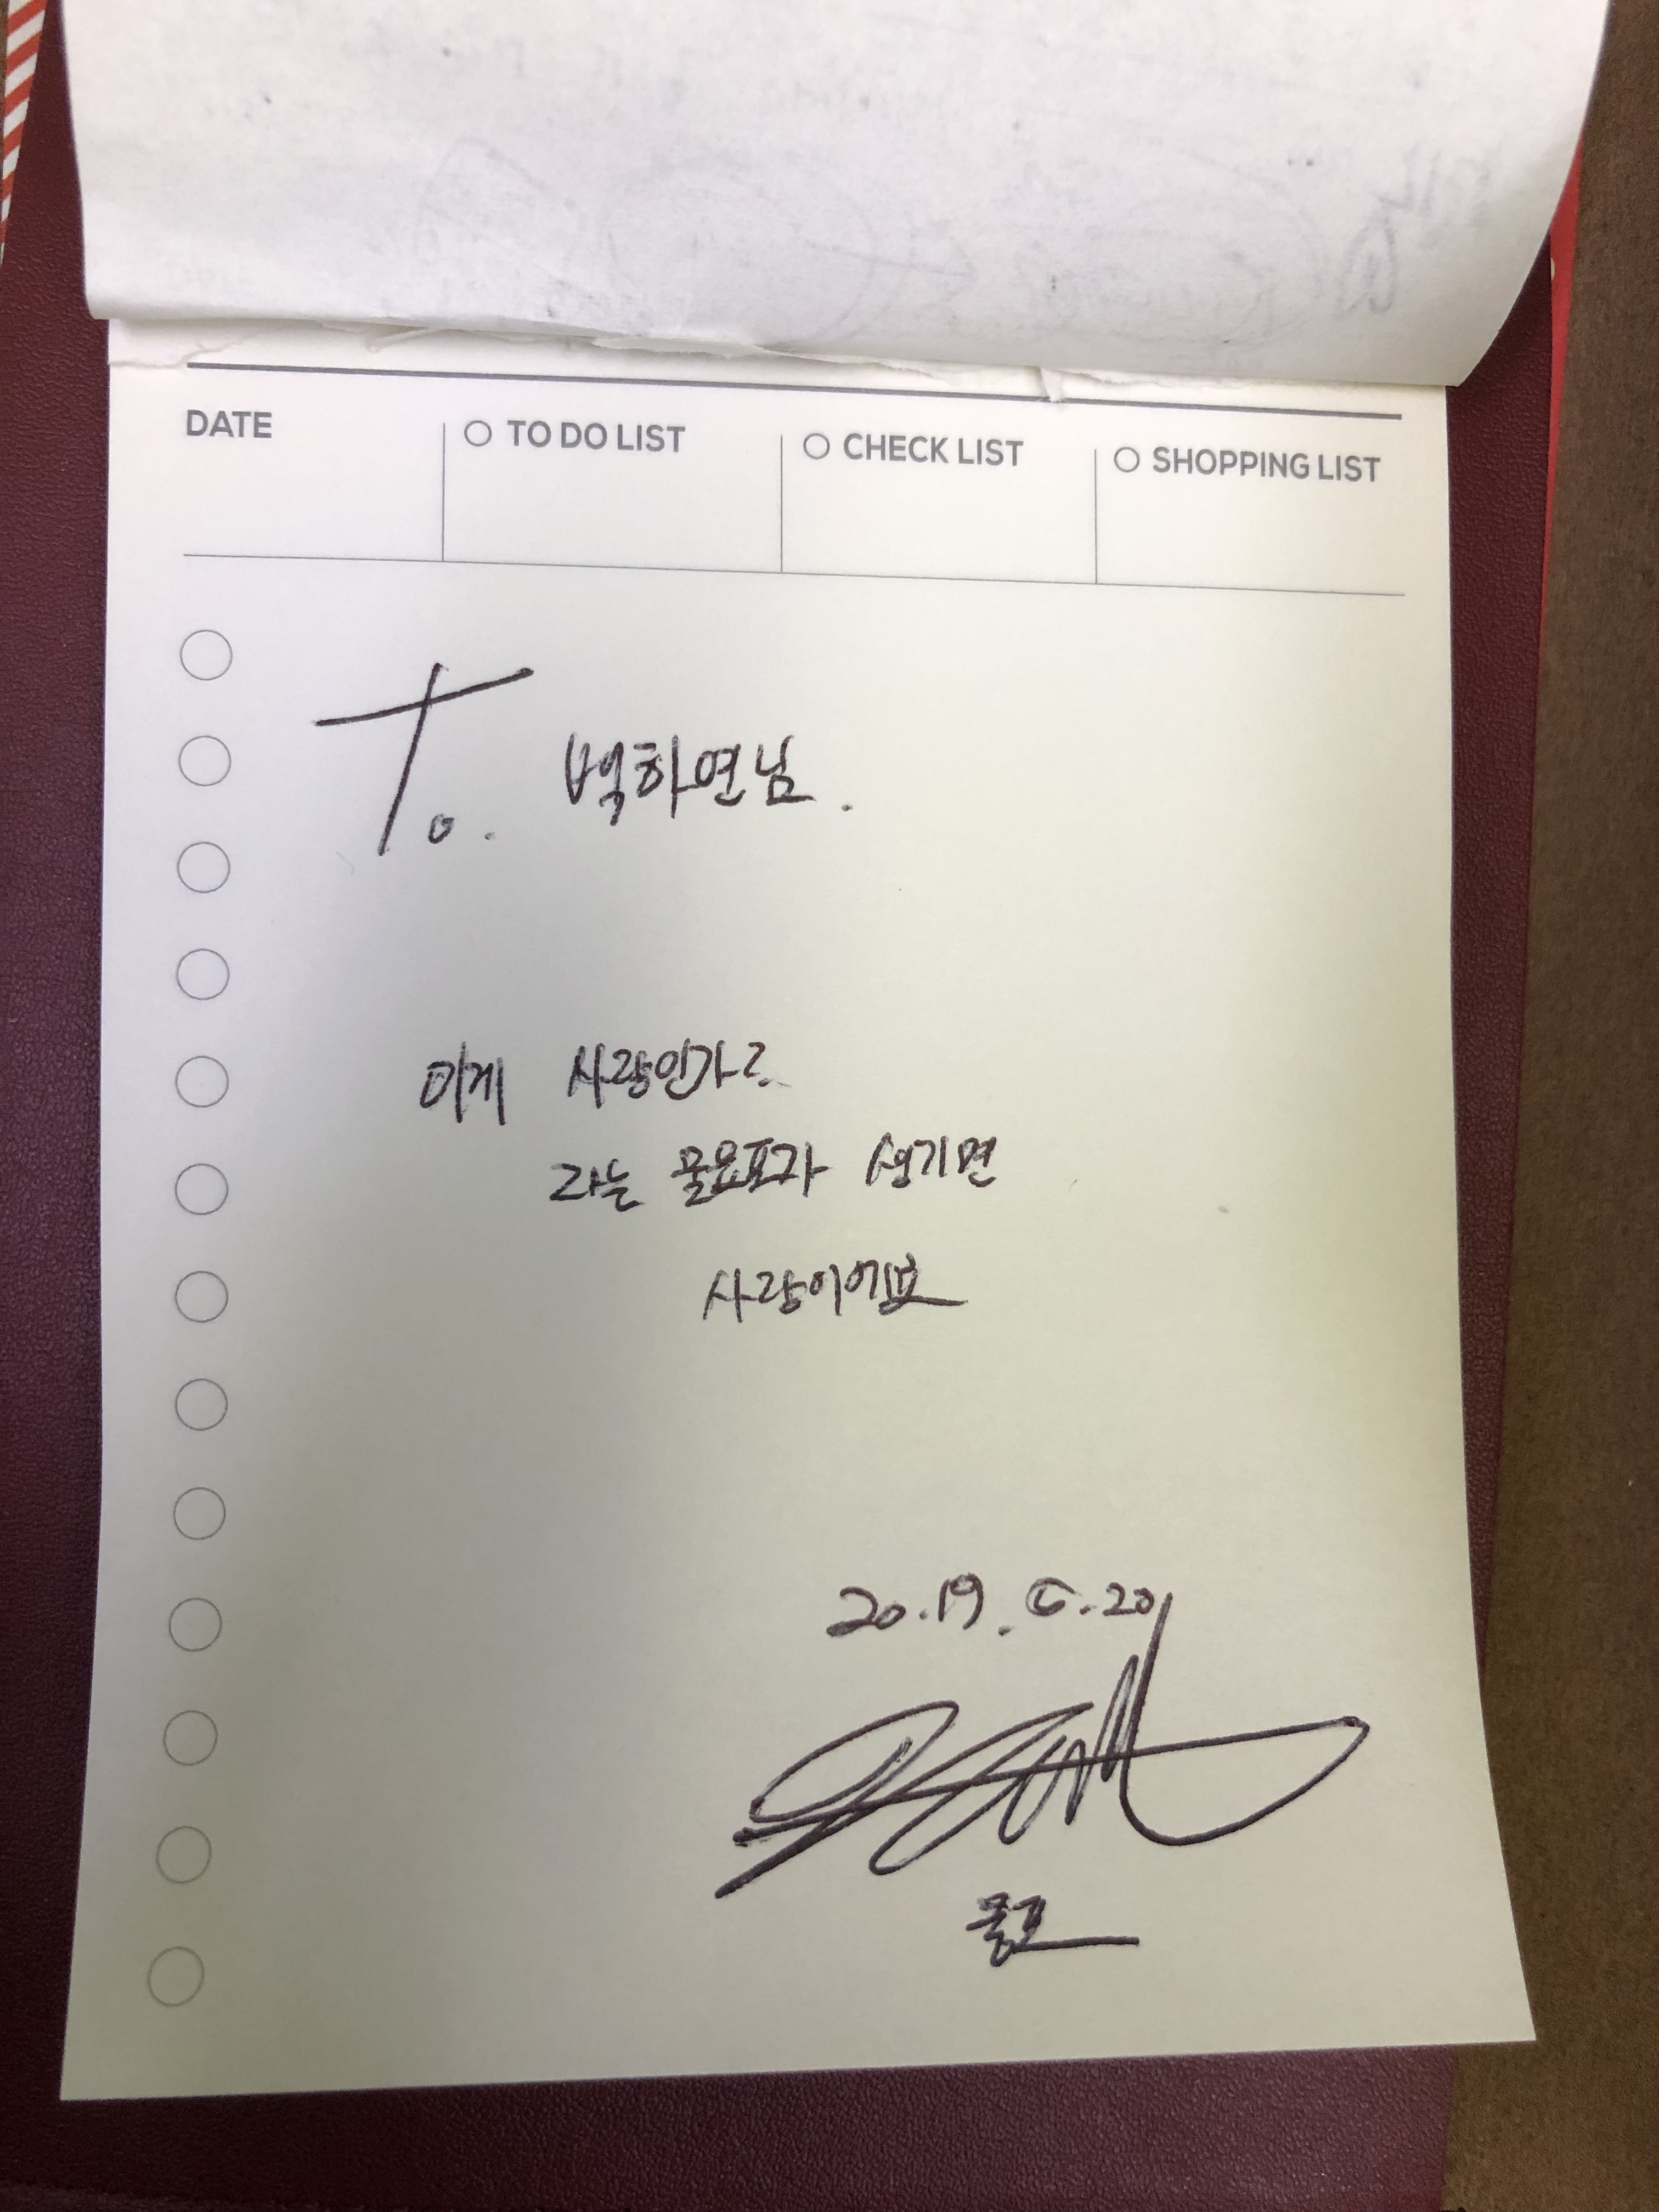 DATE
○ TO DO LIST
○ CHECK LIST
○ SHOPPING LIST
To. 벽하연님.
이게 사랑인가?
라는 물음표가 생기면
사랑이에요
20.19.6.20